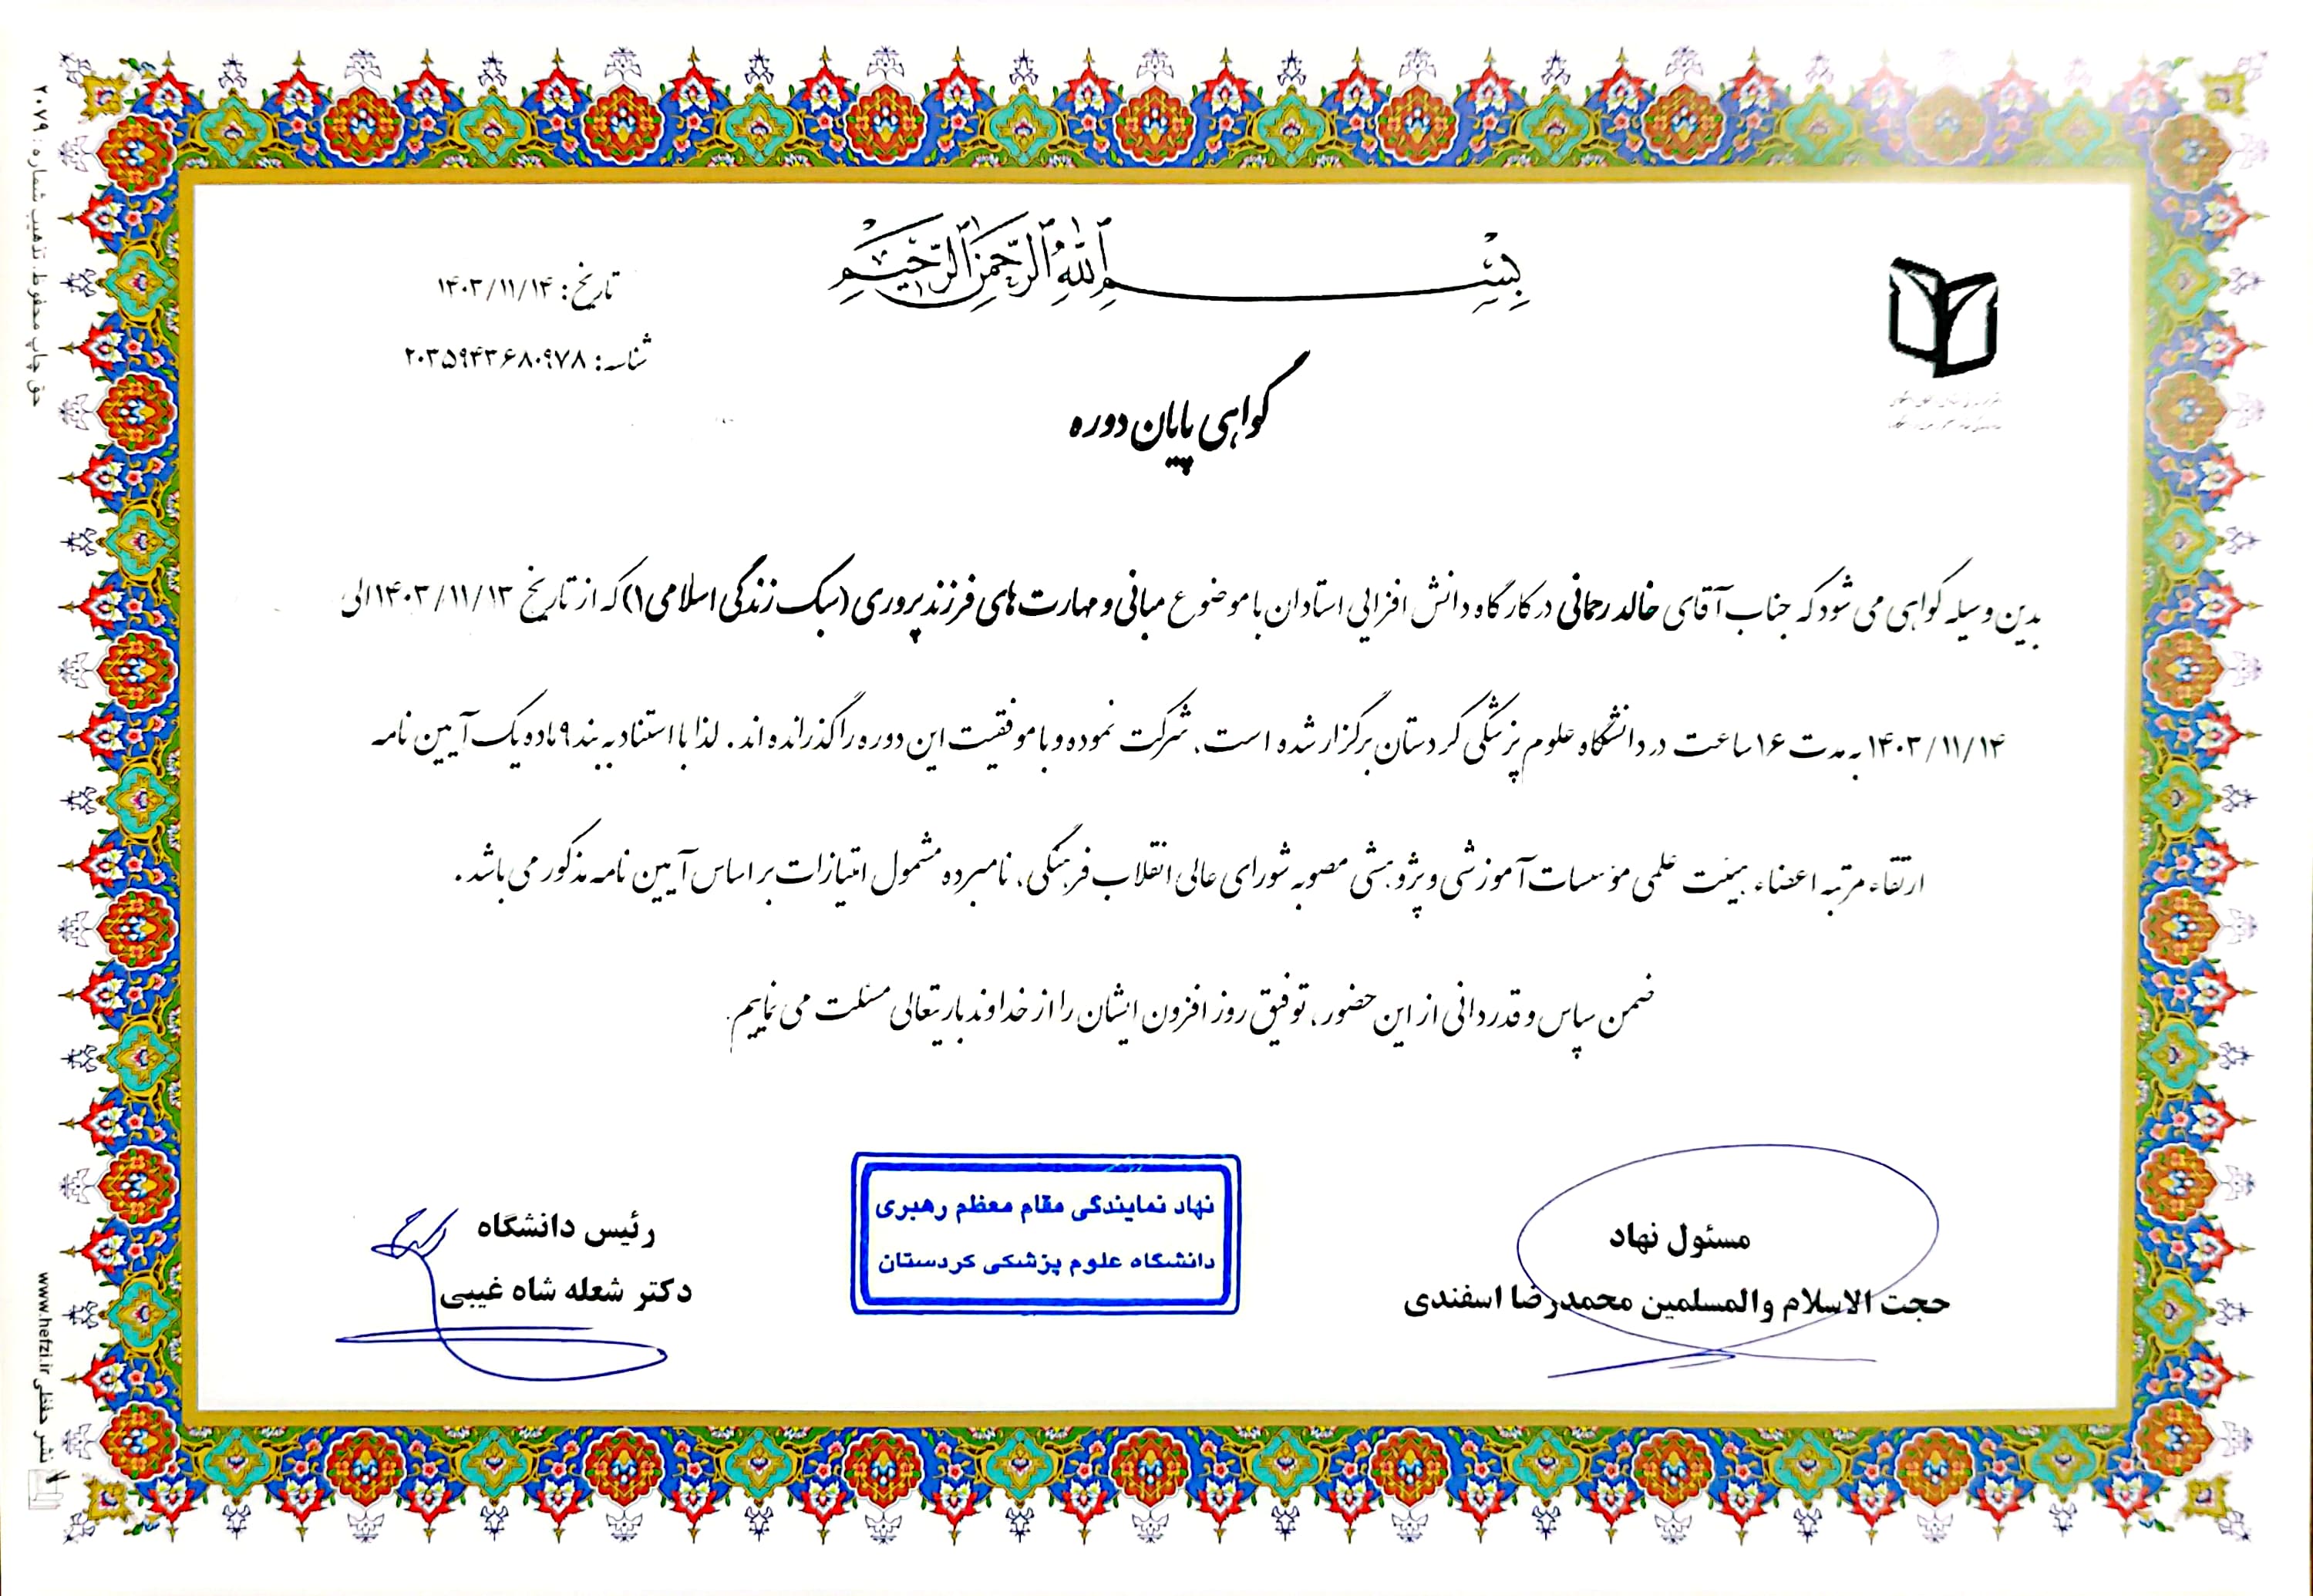 بِسْمِ اللهِ الرَّحْمنِ الرَّحیمِ
تاریخ: ۱۴۰۳/۱۱/۱۴
شناسه: ۲۰۳۵۹۴۳۶۸۰۹۷۸
گواهی پایان دوره
بدین وسیله گواهی می شود که جناب آقای خالد رحمانی در کارگاه دانش افزایی استادان با موضوع مبانی و مهارت های فرزند پروری (سبک زندگی اسلامی ۱) که از تاریخ ۱۴۰۳/۱۱/۱۳ الی
۱۴۰۳/۱۱/۱۴ به مدت ۱۶ ساعت در دانشگاه علوم پزشکی کردستان برگزار شده است، شرکت نموده و با موفقیت این دوره را گذرانده اند. لذا با استناد به بند ۹ ماده یک آیین نامه
ارتقاء مرتبه اعضاء هیئت علمی مؤسسات آموزشی و پژوهشی مصوبه شورای عالی انقلاب فرهنگی، نامبرده مشمول امتیازات بر اساس آیین نامه مذکور می باشد.
ضمن سپاس و قدردانی از این حضور، توفیق روز افزون ایشان را از خداوند باریتعالی مسئلت می نماییم.
مسئول نهاد
حجت الاسلام والمسلمین محمدرضا اسفندی
نهاد نمایندگی مقام معظم رهبری
دانشگاه علوم پزشکی کردستان
رئیس دانشگاه
دکتر شعله شاه غیبی
حق چاپ محفوظ، تذهیب شماره: ۲۰۷۹
نشر حفظی www.hefzi.ir